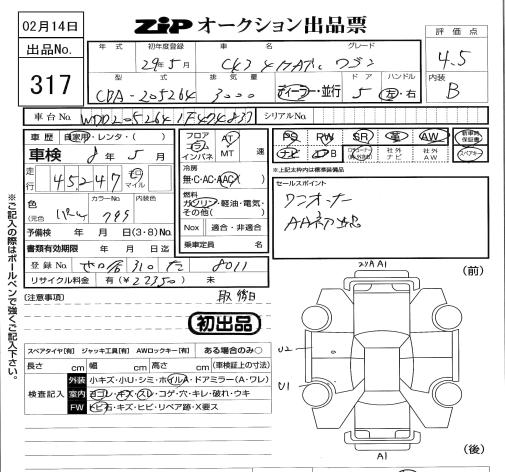 02月14日
ZIP オークション出品票
評価点
出品No.
317
年式 初年度登録 車名 グレード
29年5月 ワゴン
4.5
型式 排気量 ドア ハンドル
CDA-205264 3000 ディーラー・並行 5 左・右
内装
B
車台No. WDD2052641F404837 シリアルNo.
車歴 自家用・レンタ・( )
フロア コラム インパネ AT MT 速
PS PW SR 革 AW 新車時保証書
車検 8年5月
ナビ エアB 社外ナビ 社外AW スペアキー
走行 45247 キロ マイル
冷房 無・C・AC・AAC
※上記太枠内は標準装備品
色 (元色) カラーNo. 内装色
燃料 ガソリン・軽油・電気・その他( )
セールスポイント
ワンオーナー
AA初出品
予備検 年 月 日(3・8)No.
Nox 適合・非適合
書類有効期限 年 月 日迄
乗車定員 名
登録No. 名古屋 310 た 8011
リサイクル料金 有(¥22350) 未
(注意事項)
初出品
スペアタイヤ【有】 ジャッキ工具【有】 AWロックキー【有】 ある場合のみ○
長さ cm 幅 cm 高さ cm (車検証上の寸法)
検査記入
外装 小キズ・小U・シミ・ホイルA・ドアミラー(A・ワレ)
室内 ヨゴレ・キズ・スレ・コゲ・穴・キレ・破れ・ウキ
FW トビ石・キズ・ヒビ・リペア跡・X要ス
※ご記入の際はボールペンで強くご記入下さい。
(前)
A1
U2
U1
A1
(後)